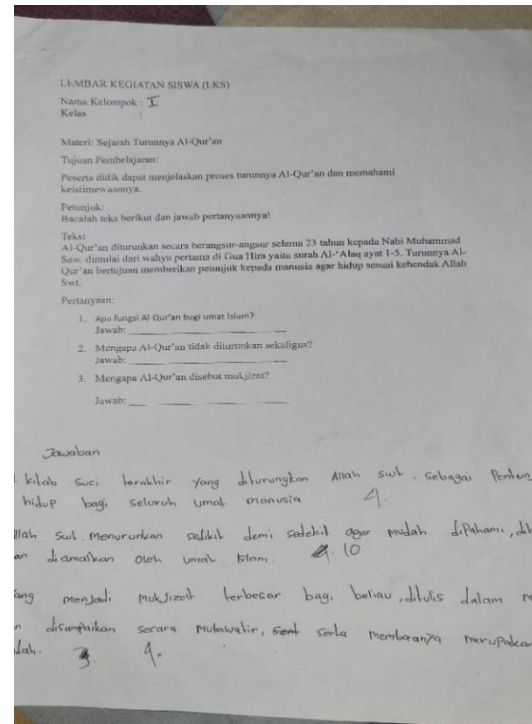 LEMBAR KEGIATAN SISWA (LKS)
Nama Kelompok : I
Kelas :
Materi: Sejarah Turunnya Al-Qur'an
Tujuan Pembelajaran:
Peserta didik dapat menjelaskan proses turunnya Al-Qur'an dan memahami
keistimewaannya.
Petunjuk:
Bacalah teks berikut dan jawab pertanyaannya!
Teks:
Al-Qur'an diturunkan secara berangsur-angsur selama 23 tahun kepada Nabi Muhammad
Saw. dimulai dari wahyu pertama di Gua Hira yaitu surah Al-'Alaq ayat 1-5. Turunnya Al-
Qur'an bertujuan memberikan petunjuk kepada manusia agar hidup sesuai kehendak Allah
Swt.
Pertanyaan:
1. Apa fungsi Al-Qur'an bagi umat Islam?
Jawab:
2. Mengapa Al-Qur'an tidak diturunkan sekaligus?
Jawab:
3. Mengapa Al-Qur'an disebut mukjizat?
Jawab:
Jawaban
kitab suci terakhir yang diturungkan Allah swt. sebagai
hidup bagi seluruh umat manusia 4.
swt. menurunkan sedikit demi sedekit agar mudah dipahami,
diamalkan oleh umat Islam. 10
menjadi mukJizat terbesar bagi beliau, ditulis dalam
disampaikan secara mutawatir, serta membacanya
3 4.